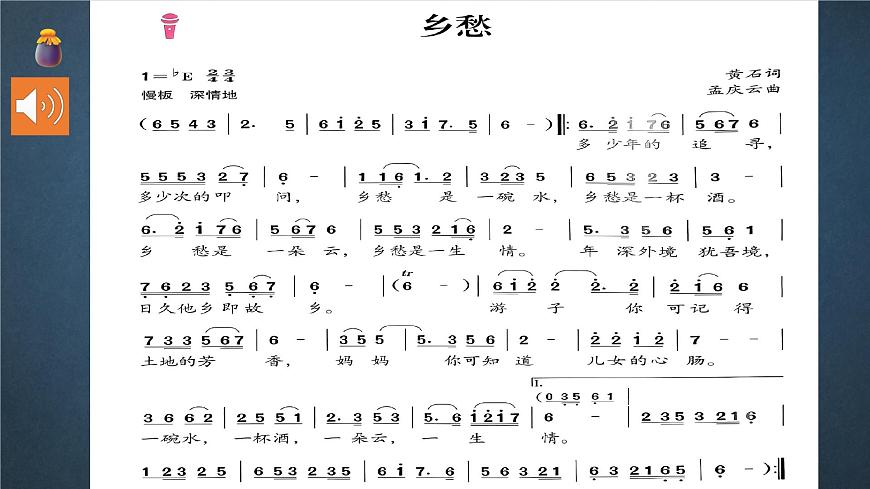 乡愁
1=♭E 2/4 3/4
黄石词
慢板 深情地
孟庆云曲
(6 5 4 3 | 2. 5 | 6 i 2 5 | 3 i 7. 5 | 6 - ) ‖: 6. 2 i 7 6 | 5 6 7 6 |
多 少年的 追 寻，
5 5 5 3 2 7 | 6 - | 1 1 6 1. 2 | 3 2 3 5 | 6 5 3 2 3 | 3 - |
多少次的叩 问， 乡愁 是 一碗 水， 乡愁是一杯 酒。
6. 2 i 7 6 | 5 6 7 6 | 5 5 3 2 1 6 | 2 - | 5. 3 5 6 | 5 6 1 |
乡 愁是 一朵 云，乡愁是一生 情。 年 深外境 犹吾境，
7 6 2 3 5 6 7 | 6 - | (6 tr - ) | 6 i 2 2 2. | 2 i 6 6 |
日久他乡即故 乡。 游 子 你 可记 得
7 3 3 5 5 6 7 | 6 - | 3 5 5 5. 3 5 6 | 2 - | 2 2 1 2 | 7 - |
土地的芳 香， 妈 妈 你可知 道 儿女的心 肠。
1.
(0 3 5 6 1
3 6 6 2 | 2 5 5 1 | 2. 3 5 3 | 5. 6 i 2 i 7 | 6 - | 2 3 5 3 2 1 6 |
一碗水， 一杯酒， 一 朵云， 一 生 情。
1 2 3 2 3 5 | 3 2 3 5 3 5 | 6 i 7. 6 | 5 6 5 3 2 1 | 6 3 2 1 6 5 | 6 - ) :‖